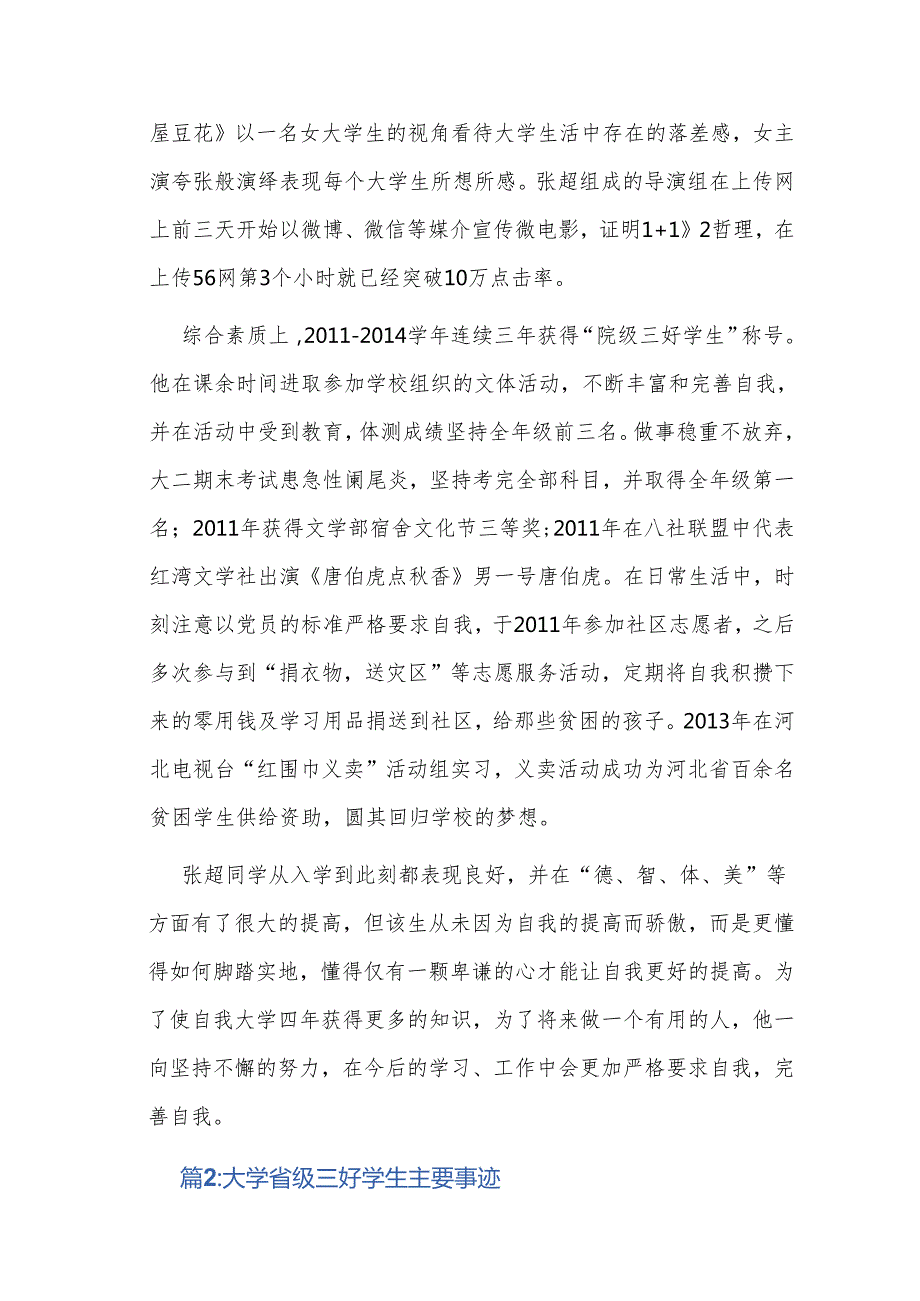 屋豆花》以一名女大学生的视角看待大学生活中存在的落差感，女主
演夸张般演绎表现每个大学生所想所感。张超组成的导演组在上传网
上前三天开始以微博、微信等媒介宣传微电影，证明1+1》2哲理，在
上传56网第3个小时就已经突破10万点击率。
综合素质上,2011-2014学年连续三年获得“院级三好学生”称号。
他在课余时间进取参加学校组织的文体活动，不断丰富和完善自我，
并在活动中受到教育，体测成绩坚持全年级前三名。做事稳重不放弃，
大二期末考试患急性阑尾炎，坚持考完全部科目，并取得全年级第一
名；2011年获得文学部宿舍文化节三等奖;2011年在八社联盟中代表
红湾文学社出演《唐伯虎点秋香》男一号唐伯虎。在日常生活中，时
刻注意以党员的标准严格要求自我，于2011年参加社区志愿者，之后
多次参与到“捐衣物，送灾区”等志愿服务活动，定期将自我积攒下
来的零用钱及学习用品捐送到社区，给那些贫困的孩子。2013年在河
北电视台“红围巾义卖”活动组实习，义卖活动成功为河北省百余名
贫困学生供给资助，圆其回归学校的梦想。
张超同学从入学到此刻都表现良好，并在“德、智、体、美”等
方面有了很大的提高，但该生从未因为自我的提高而骄傲，而是更懂
得如何脚踏实地，懂得仅有一颗卑谦的心才能让自我更好的提高。为
了使自我大学四年获得更多的知识，为了将来做一个有用的人，他一
向坚持不懈的努力，在今后的学习、工作中会更加严格要求自我，完
善自我。
篇2:大学省级三好学生主要事迹